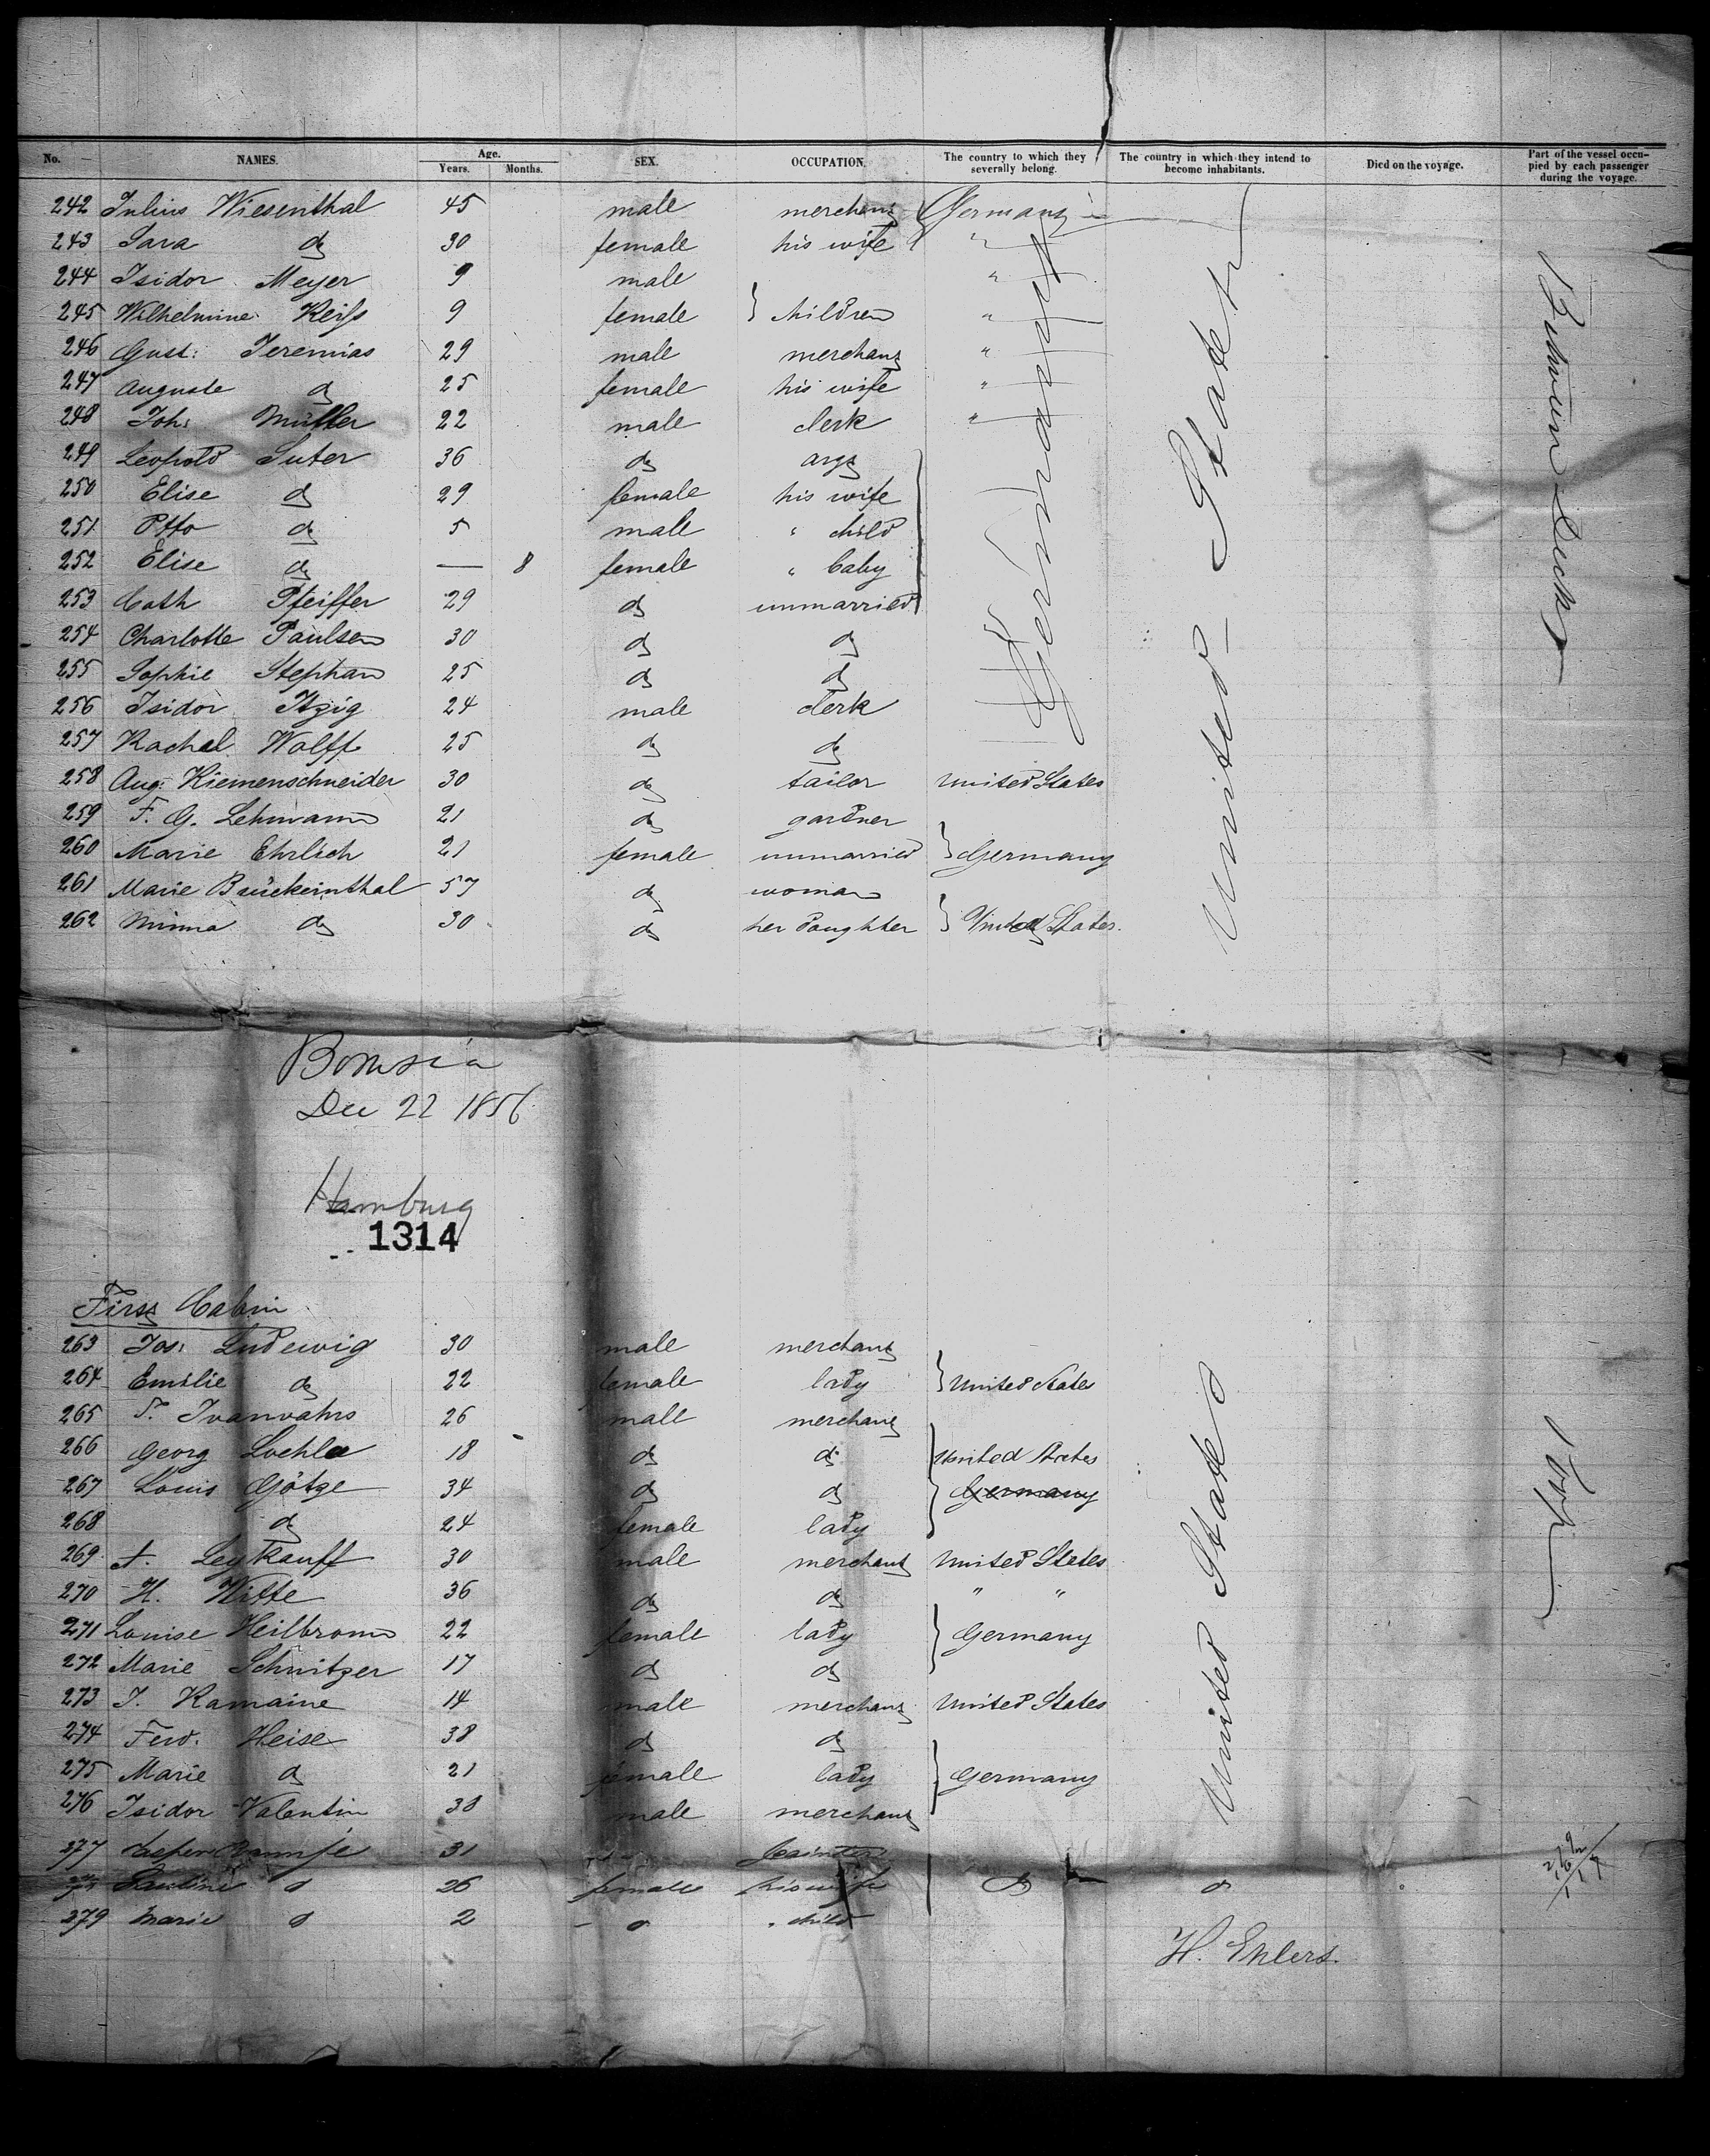 No. NAMES. Age. Years. Months. SEX. OCCUPATION. The country to which they severally belong. The country in which they intend to become inhabitants. Died on the voyage. Part of the vessel occupied by each passenger during the voyage.
242 Julius Wiesenthal 45 male merchant Germany
243 Sara do 30 female his wife "
244 Isidor Meyer 9 male "
245 Wilhelmine Reiss 9 female } children "
246 Gust: Jeremias 29 male merchant "
247 Auguste do 25 female his wife "
248 Joh: Müller 22 male clerk "
249 Leopold Suter 36 do
250 Elise do 29 female his wife
251 Otto do 5 male " child
252 Elise do — 8 female " baby
253 Cath Pfeiffer 29 do unmarried
254 Charlotte Paulsen 30 do do
255 Sophie Stephan 25 do do
256 Isidor Itzig 24 male clerk
257 Rachel Wolff 25 do do
258 Aug: Riemenschneider 30 do tailor United States
259 F. G. Lehmann 21 do gardner
260 Marie Ehrlich 21 female unmarried } Germany
261 Marie Brückenthal 57 do woman
262 Minna do 30 do her daughter } United States.
Germany
United States
Between Deck
Borussia
Dec 22 1856
Hamburg
1314
First Cabin
263 Jos: Ludewig 30 male merchant
264 Emilie do 22 female lady } United States
265 26 male merchant
266 Georg 18 do do United States
267 Louis Götze 34 do do Germany
268 do 24 female lady
269 A. Leykauff 30 male merchant United States
270 H. Witte 36 do do " "
271 Louise Heilbronn 22 female lady } Germany
272 Marie Schnitzer 17 do do
273 J. Ramaine 14 male merchant United States
274 Ferd. Heise 38 do do
275 Marie do 21 female lady } Germany
276 Isidor Valentin 38 male merchant
277 31 painter
278 Pauline do 26 female his wife do do
279 Marie do 2 - do " child
United States
H. Ehlers.